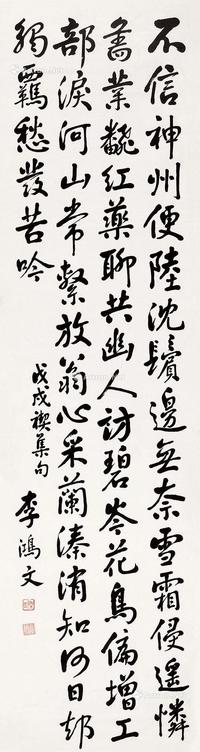 不信神州便陸沈鬢邊無奈雪霜侵遙憐
舊業飜紅藥聊共幽人訪碧岑花鳥偏增工
部淚河山常繫放翁心采蘭溱洧知何日却
觸羈愁發苦吟
戊戌禊集句 李鴻文